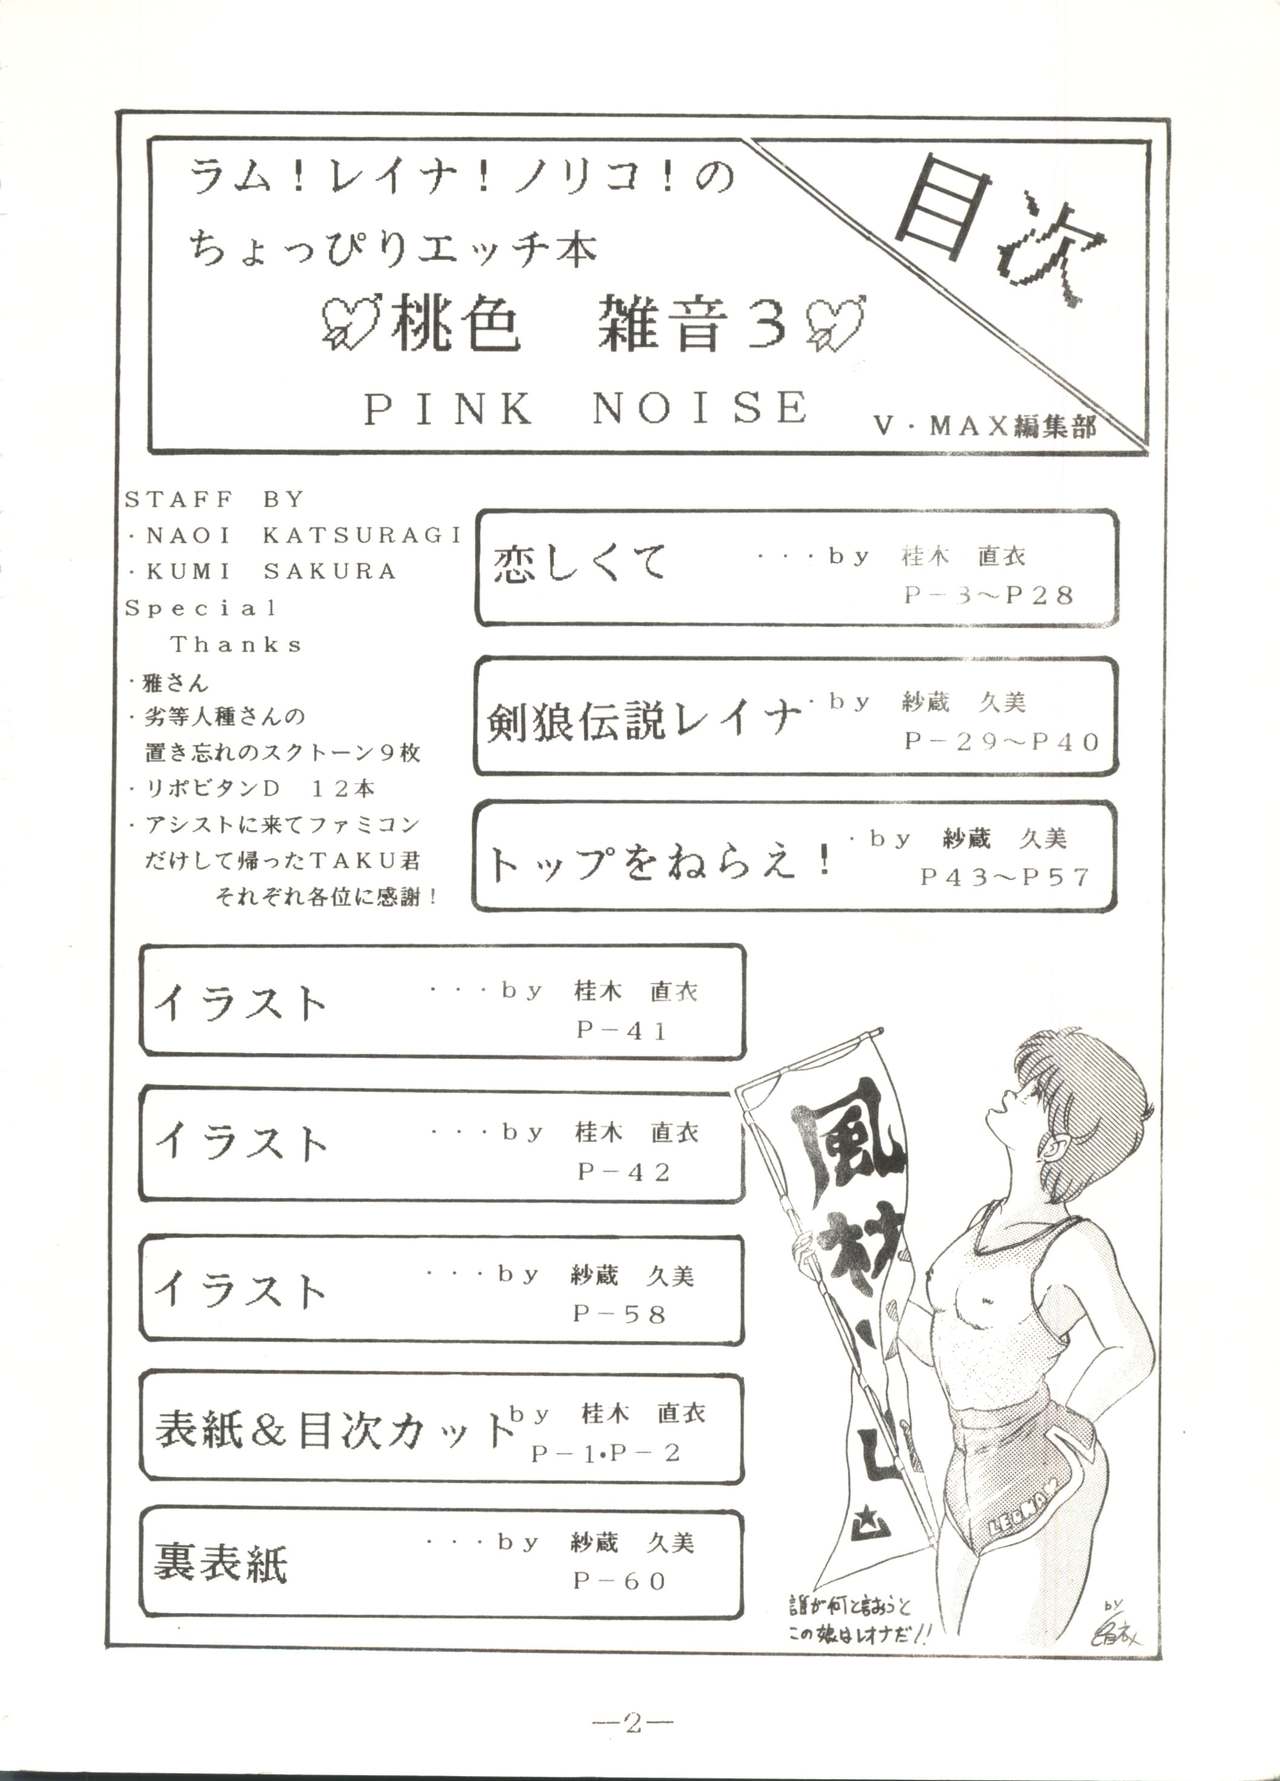 目次
ラム！レイナ！ノリコ！の
ちょっぴりエッチ本
桃色　雑音３
ＰＩＮＫ　ＮＯＩＳＥ
Ｖ・ＭＡＸ編集部
ＳＴＡＦＦ　ＢＹ
・ＮＡＯＩ　ＫＡＴＳＵＲＡＧＩ
・ＫＵＭＩ　ＳＡＫＵＲＡ
Ｓｐｅｃｉａｌ
Ｔｈａｎｋｓ
・雅さん
・劣等人種さんの
置き忘れのスクトーン９枚
・リポビタンＤ　１２本
・アシストに来てファミコン
だけして帰ったＴＡＫＵ君
それぞれ各位に感謝！
恋しくて　・・・ｂｙ　桂木　直衣
Ｐ－３～Ｐ２８
剣狼伝説レイナ・ｂｙ　紗蔵　久美
Ｐ－２９～Ｐ４０
トップをねらえ！・ｂｙ　紗蔵　久美
Ｐ４３～Ｐ５７
イラスト　・・・ｂｙ　桂木　直衣
Ｐ－４１
イラスト　・・・ｂｙ　桂木　直衣
Ｐ－４２
イラスト　・・・ｂｙ　紗蔵　久美
Ｐ－５８
表紙＆目次カットｂｙ　桂木　直衣
Ｐ－１・Ｐ－２
裏表紙　・・・ｂｙ　紗蔵　久美
Ｐ－６０
LEONA
誰が何と言おうと
この娘はレオナだ!!
by 直衣
—2—